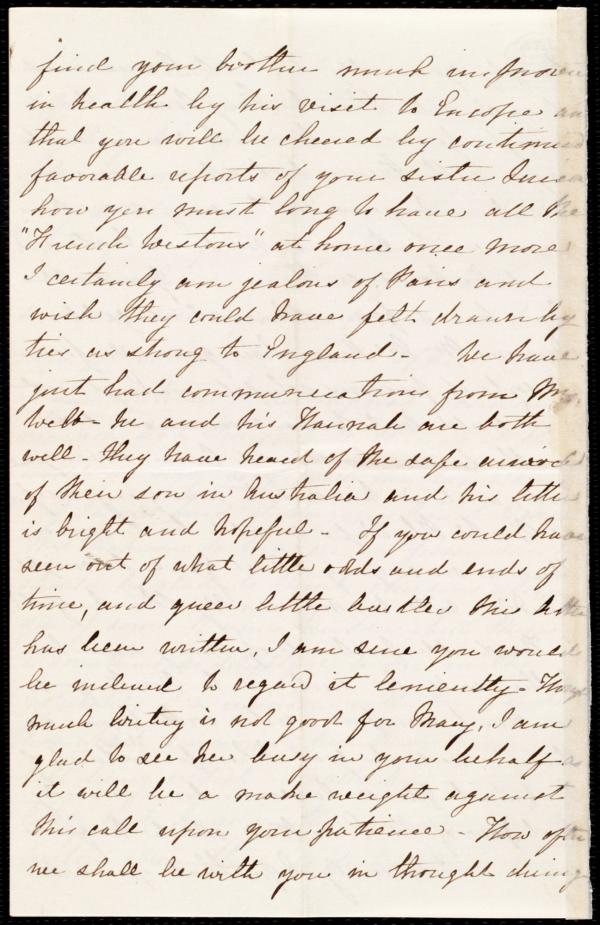 find your brother much improved
in health by his visit to Europe and
that you will be cheered by continued
favorable reports of your sister
how you must long to have all the
"French Westons" at home once more
I certainly am jealous of Paris and
wish they could have felt drawn by
ties as strong to England - We have
just had communications from Mr.
Webb - he and his Hannah are both
well - they have heard of the safe arrival
of their son in Australia and his letter
is bright and hopeful - If you could have
seen out of what little odds and ends of
time, and queer little bustles this letter
has been written, I am sure you would
be inclined to regard it leniently - Though
much writing is not good for Mary, I am
glad to see her busy in your behalf as
it will be a make weight against
this call upon your patience - How often
we shall be with you in thought during